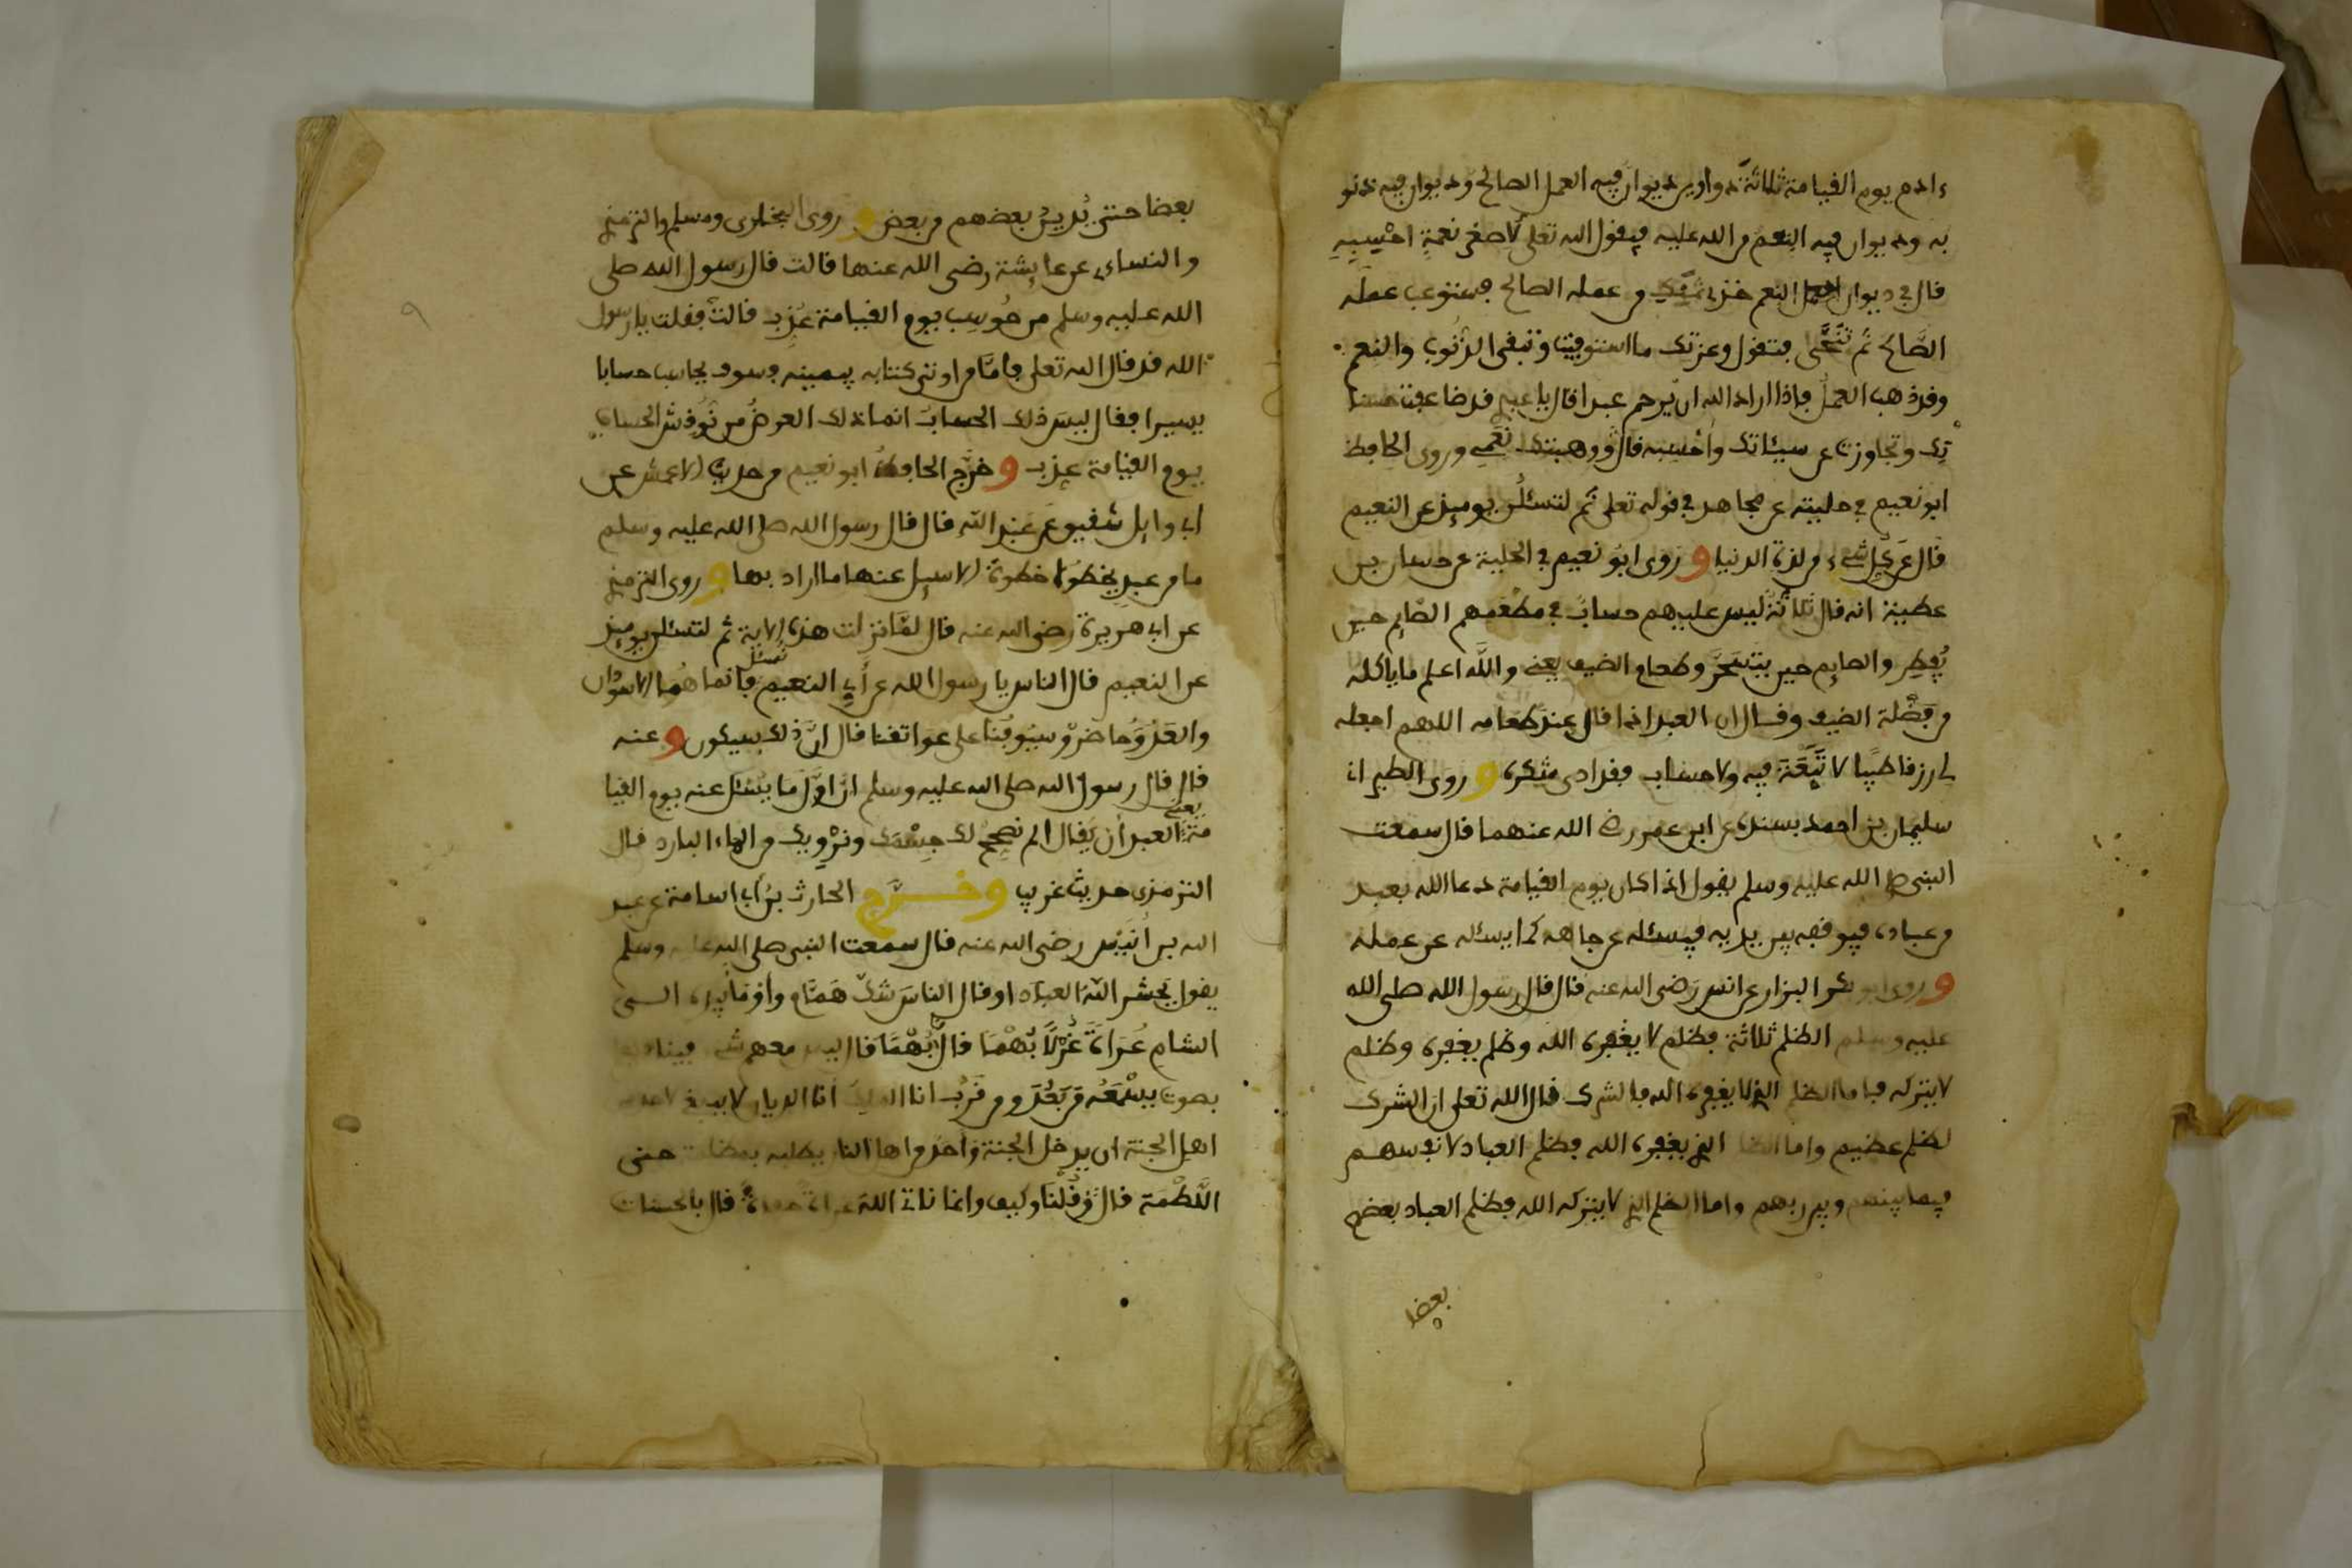 ءادم يوم القيامة ثلاثة دواوين ديوان فيه العمل الصالح وديوان فيه ذنو
به وديوان فيه النعم من الله عليه فيقول الله تعلى لأصغر نعمة احسبه
قال في ديوان النعم خذي ثمنك من عمله الصالح فستوعب عمله
الصالح ثم تنحى فتقول وعزتك ما استوفيت وتبقى الذنوب والنعم
وقد ذهب العمل فإذا اراد الله ان يرحم عبدا قال يا عبدي قد ضاعفت حسنا
تك وتجاوزت عن سيئاتك وأحسبه قال ووهبتك نعمي وروى الحافظ
ابو نعيم في حليته عن مجاهد في قوله تعلى ثم لتسئلن يوميذ عن النعيم
قال عن كل شيء من لذة الدنيا و روى ابو نعيم في الحلية عن حسان بن
عطية انه قال ثلاثة ليس عليهم حساب في مطعمهم الصايم حين
يفطر والصايم حين يتسحر وطعام الضيف يعني والله اعلم ما ياكله
من فضلة الضيف وقال ان العبد اذا قال عند طعامه اللهم اجعله
لي رزقا طيبا لا تبعة فيه ولا حساب فقد ادى شكره و روى الطبراني
سليمان بن احمد بسنده عن ابن عمر رضي الله عنهما قال سمعت
النبي صلى الله عليه وسلم يقول اذا كان يوم القيامة دعا الله بعبد
من عباده فيوقفه بين يديه فيسئله عن جاهه كما يسئله عن عمله
و روى ابو بكر البزار عن انس رضي الله عنه قال قال رسول الله صلى الله
عليه وسلم الظلم ثلاثة فظلم لا يغفره الله وظلم يغفره وظلم
لا يتركه فاما الظلم الذي لا يغفره الله فالشرك قال الله تعلى ان الشرك
لظلم عظيم واما الذي يغفره الله فظلم العباد لانفسهم
فيما بينهم وبين ربهم واما الظلم الذي لا يتركه الله فظلم العباد بعضهم
بعضا
بعضا حتى يدين بعضهم من بعض و روى البخاري ومسلم والترمذي
والنساءي عن عايشة رضي الله عنها قالت قال رسول الله صلى
الله عليه وسلم من حوسب يوم القيامة عذب قالت فقلت يا رسول
الله قد قال الله تعلى فأما من اوتي كتابه بيمينه فسوف يحاسب حسابا
يسيرا فقال ليس ذلك الحساب انما ذلك العرض من نوقش الحساب
يوم القيامة عذب و خرج الحافظ ابو نعيم من حديث الاعمش عن
ابي وايل شقيق عن عبد الله قال قال رسول الله صلى الله عليه وسلم
ما من عبد يخطوا خطوة الا سيل عنها ما اراد بها و روى الترمذي
عن ابي هريرة رضي الله عنه قال لما نزلت هذه الاية ثم لتسئلن يوميذ
عن النعيم قال الناس يا رسول الله عن أي النعيم نسئل فانما هما الاسودان
والعدو حاضر وسيوفنا على عواتقنا قال ان ذلك سيكون و عنه
قال قال رسول الله صلى الله عليه وسلم ان اول ما يسئل عنه يوم القيا
مة يعني العبد أن يقال الم نصح لك جسمك ونرويك من الماء البارد قال
الترمذي حديث غريب و خرج الحارث بن أبي اسامة عن عبد
الله بن أنيس رضي الله عنه قال سمعت النبي صلى الله عليه وسلم
يقول يحشر الله العباد او قال الناس شك همام وأومأ بيده الى
الشام عراة غرلا بهما قال بهما قال ليس معهم شيء فيناديهم
بصوت يسمعه من بعد ومن قرب انا الملك انا الديان لا ينبغي لاحد من
اهل الجنة ان يدخل الجنة وأحد من اهل النار يطلبه بمظلمة حتى
اللطمة قال قلنا وكيف وانما ناتي الله عراة قال بالحسنات